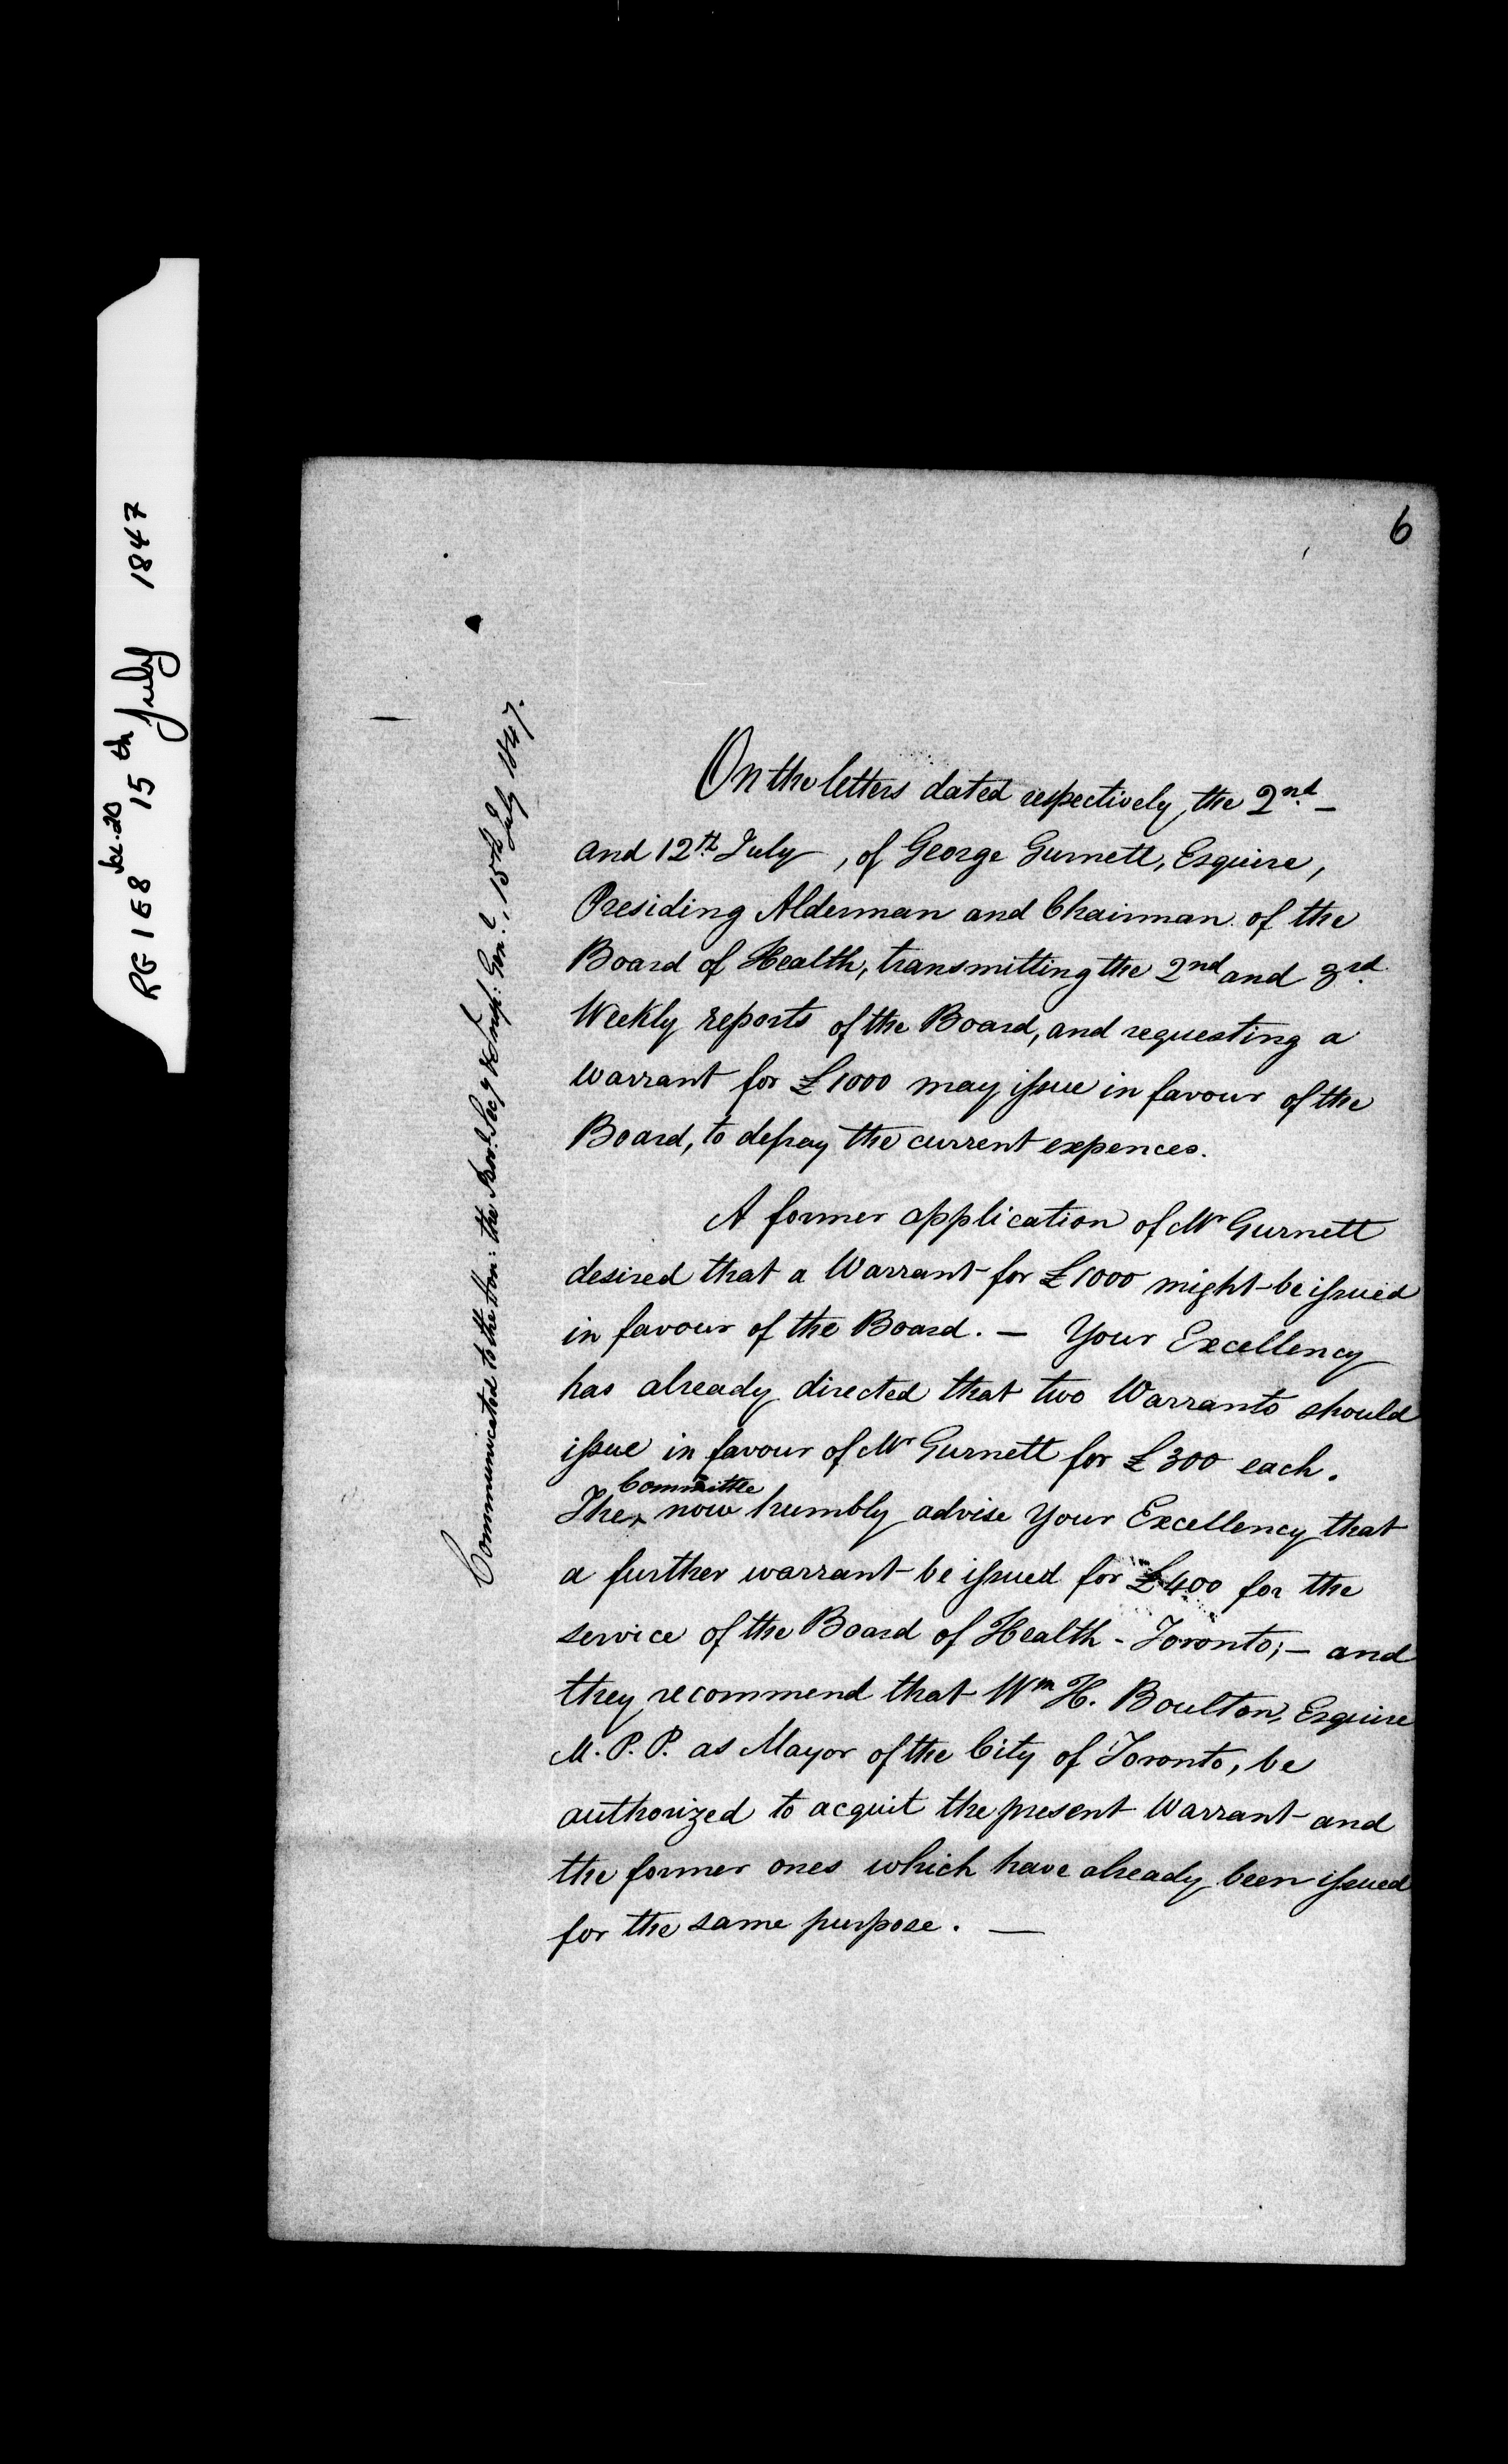 RG 1 E8 Vol. 20 15th July 1847
6
Communicated to the Hon: the Prov.l Sec.y & Insp: Gen.l, 15th July 1847.
On the letters dated respectively, the 2nd. –
and 12th. July –, of George Gurnett, Esquire,
Presiding Alderman and Chairman of the
Board of Health, transmitting the 2nd and 3rd.
Weekly reports of the Board, and requesting a
warrant for £1000 may issue in favour of the
Board, to defray the current expences.
A former application of Mr Gurnett
desired that a Warrant for £1000 might be issued
in favour of the Board. — Your Excellency
has already directed that two Warrants should
issue in favour of Mr Gurnett for £300 each.
Committee
The ‸ now humbly advise Your Excellency that
a further warrant be issued for £400 for the
service of the Board of Health - Toronto; – and
they recommend that Wm H. Boulton, Esquire
M.P.P. as Mayor of the City of Toronto, be
authorized to acquit the present Warrant and
the former ones which have already been issued
for the same purpose. —